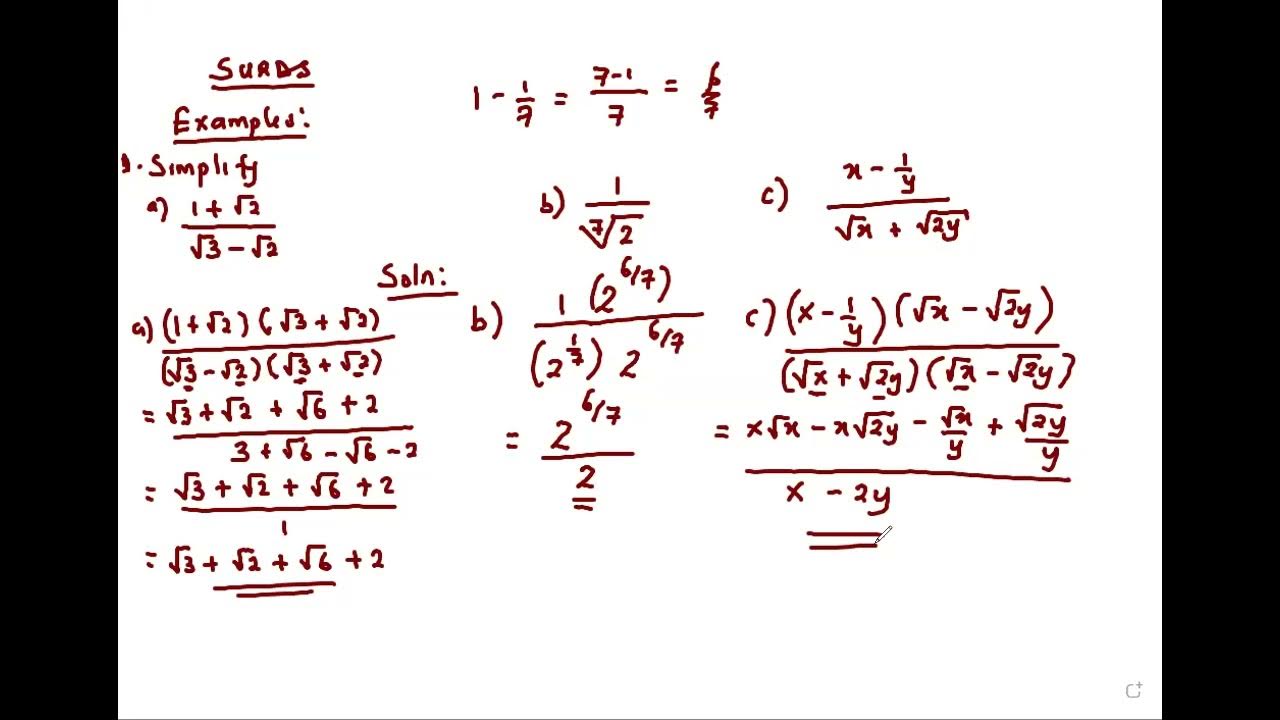 SURDS
Examples:
1 - 1/7 = (7-1)/7 = 6/7
1. Simplify
a) (1 + √2)/(√3 - √2)
b) 1/⁷√2
c) (x - 1/y)/(√x + √2y)
Soln:
a) (1+√2)(√3+√2)/(√3-√2)(√3+√2)
= (√3+√2 + √6 +2)/(3+√6-√6-2)
= (√3+√2+√6+2)/1
= √3+√2+√6+2
b) 1(2^6/7)/(2^1/7) 2^6/7
= 2^6/7/2
c) (x - 1/y)(√x - √2y)/(√x+√2y)(√x-√2y)
= (x√x - x√2y - √x/y + √2y/y)/(x - 2y)